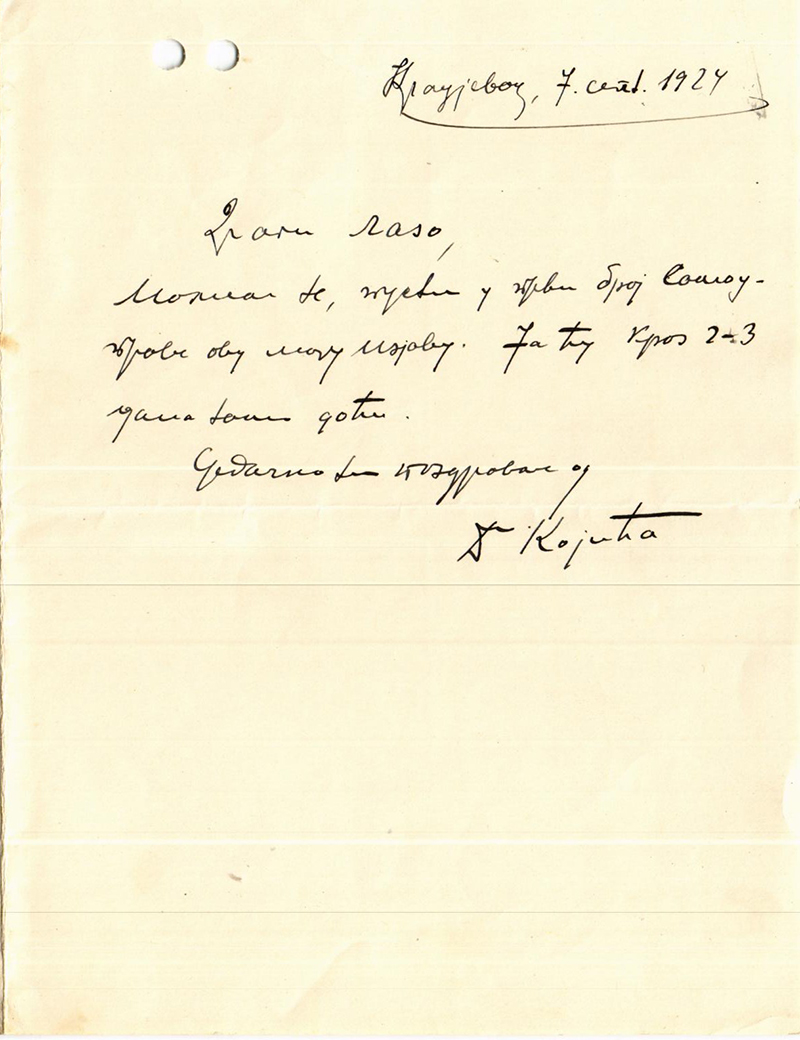 Крагујевац, 7. септ. 1924
Драги Лазо,
Молим те, пусти у први број Самоу-
праве ову моју изјаву. Ја ћу кроз 2-3
дана тамо доћи.
Срдачно те поздравља
Др Којића